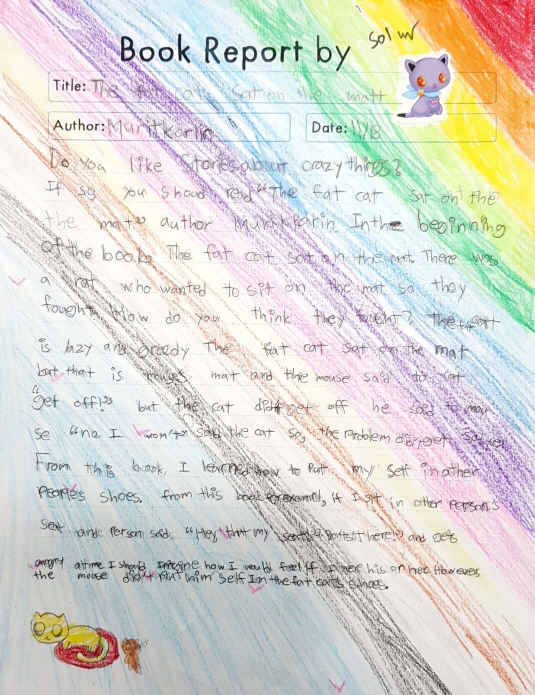 Book Report by Sol w
Title: The fat cat sat on the matt
Author: Muritkarlin Date: 11/18
Do you like stories about crazy things?
If so you shoud read "The fat cat sat on the
the mat" author Muritkarin. In the beginning
of the book The fat cat sat on the mat. There was
a rat who wanted to sit on the mat so they
fought. How do you think they fought? The cat
is lazy and greedy The fat cat sat on the mat
but that is mat and the mouse said to cat
"get off!" but the cat didt get off he said to mou
se "no I won't" said the cat so, the problem
From this book, I learned how to put my self in other
People's shoes. from this book for exampl, if I sit in other person's
seat and Person said, "Hey, that my seat! Don't sit here!" and gets
angry at me I should Imagine how I would feel if I However,
the mouse didn't put him self In the fat cat's shoes.